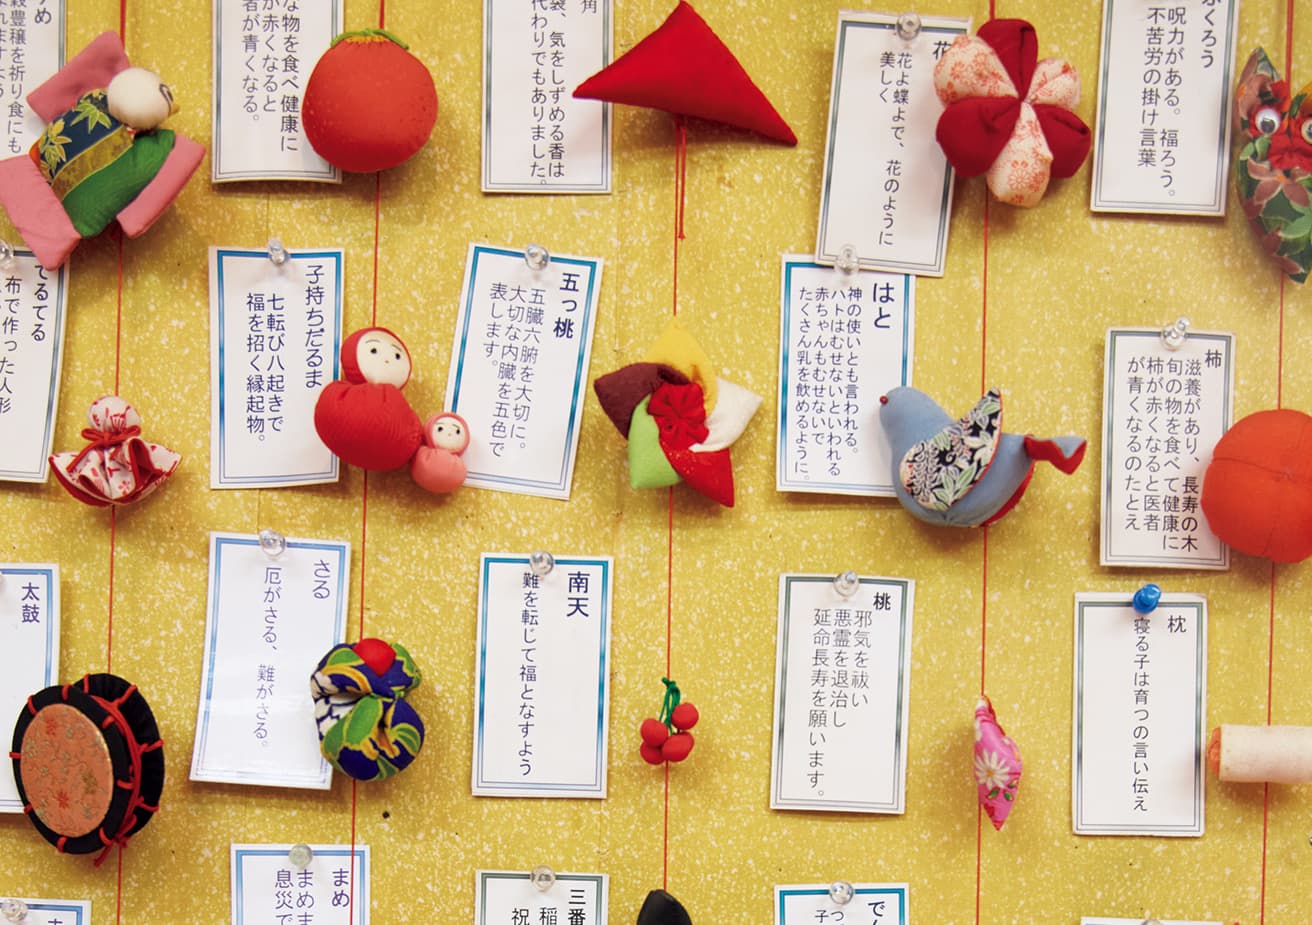 め
穀豊穣を祈り食にも
な物を食べ健康に
が赤くなると
者が青くなる。
角
袋、気をしずめる香は
代わりでもありました。
花
花よ蝶よで、花のように
美しく
ふくろう
呪力がある。福ろう。
不苦労の掛け言葉
てるてる
布で作った人形
子持ちだるま
七転び八起きで
福を招く縁起物。
五っ桃
五臓六腑を大切に。
大切な内臓を五色で
表します。
はと
神の使いとも言われる。
ハトはむせないといわれる
赤ちゃんもむせないで
たくさん乳を飲めるように。
柿
滋養があり、長寿の木
旬の物を食べて健康に
柿が赤くなると医者
が青くなるのたとえ
太鼓
さる
厄がさる、難がさる。
南天
難を転じて福となすよう
桃
邪気を祓い
悪霊を退治し
延命長寿を願います。
枕
寝る子は育つの言い伝え
まめ
まめま
息災で
三番
稲
祝
でん
つ
子